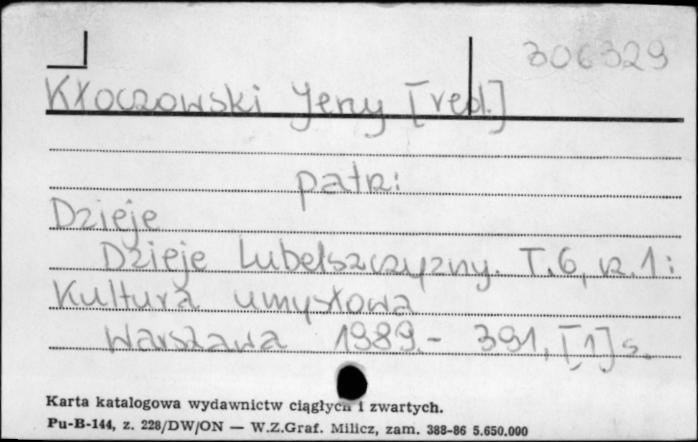 306329
Kłoczowski Jerzy [red.]
patrz:
Dzieje
Dzieje Lubelszczyzny. T.6, cz.1:
Kultura umysłowa
Warszawa 1989.- 391, [1] s.
Karta katalogowa wydawnictw ciągłych i zwartych.
Pu-B-144, z. 228/DW/ON — W.Z.Graf. Milicz, zam. 388-86 5.650.000